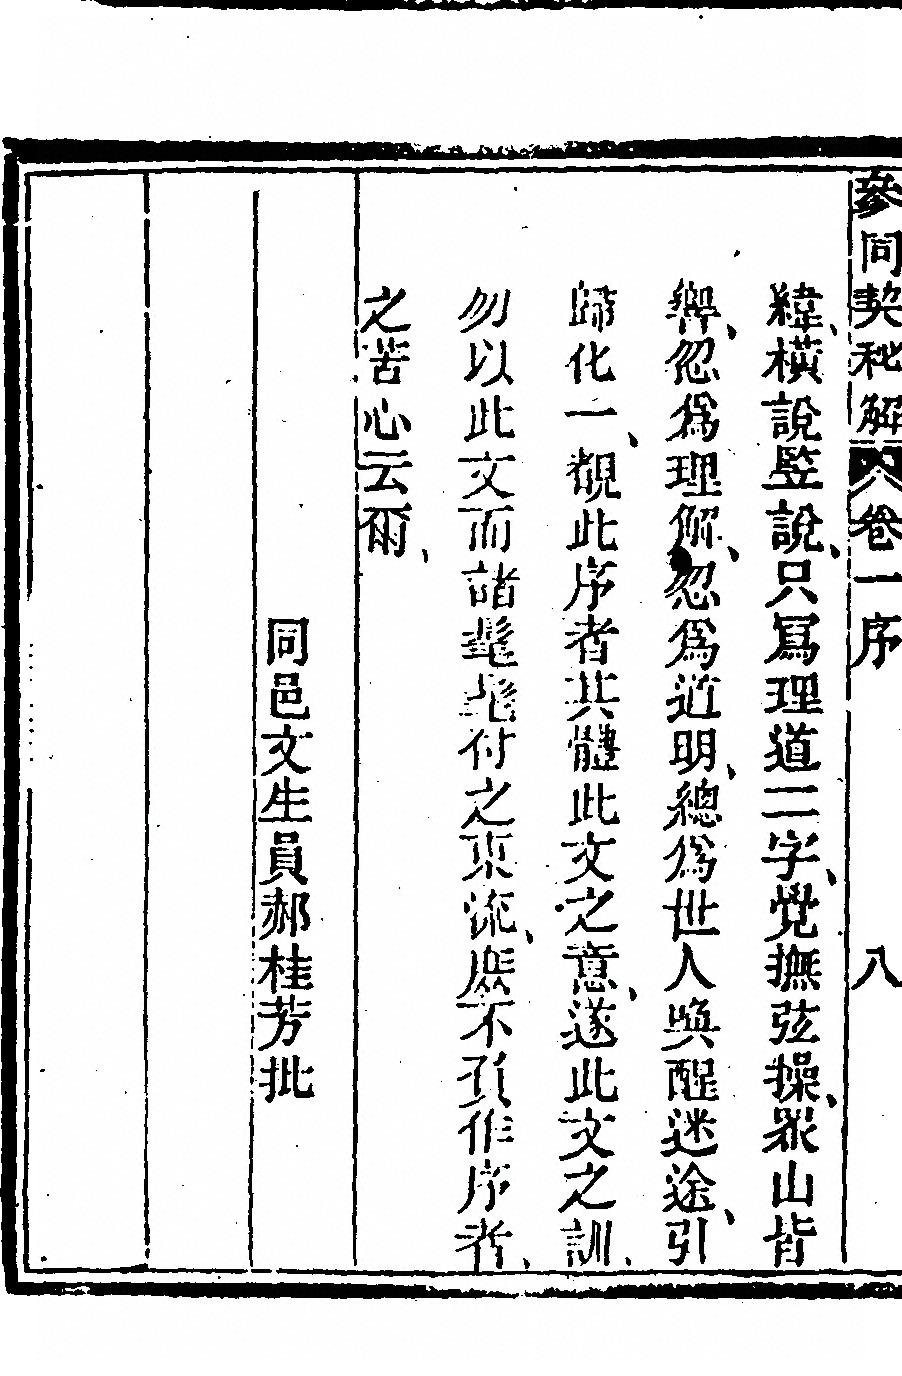 參同契秘解 卷一序 八
緯、橫說竪說、只寫理道二字、覺撫弦操、眾山皆
響、忽為理解、忽為道明、總為世人喚醒迷途、引
歸化一、覩此序者共體此文之意、遂此文之訓、
勿以此文而諸髦髦付之東流、庶不負作序者、
之苦心云爾、
同邑文生員郝桂芳批